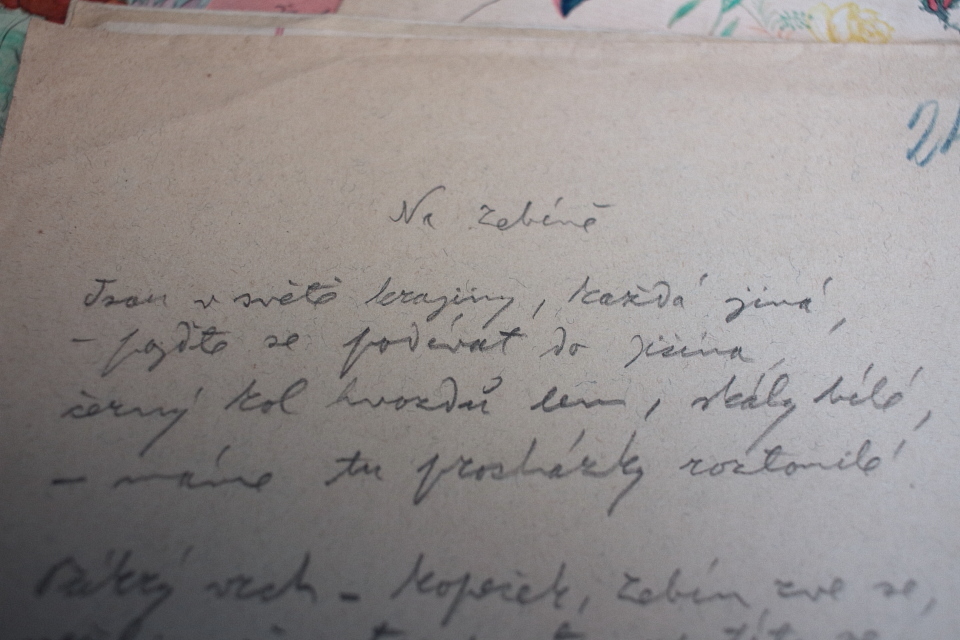 21
Na Zebíně
Jsou v světě krajiny, každá jiná,
- pojďte se podívat do Jičína,
černý kol hvozdů lem, skály bílé,
- máme tu procházky roztomilé!
vrch - kopeček, Zebín zve se,